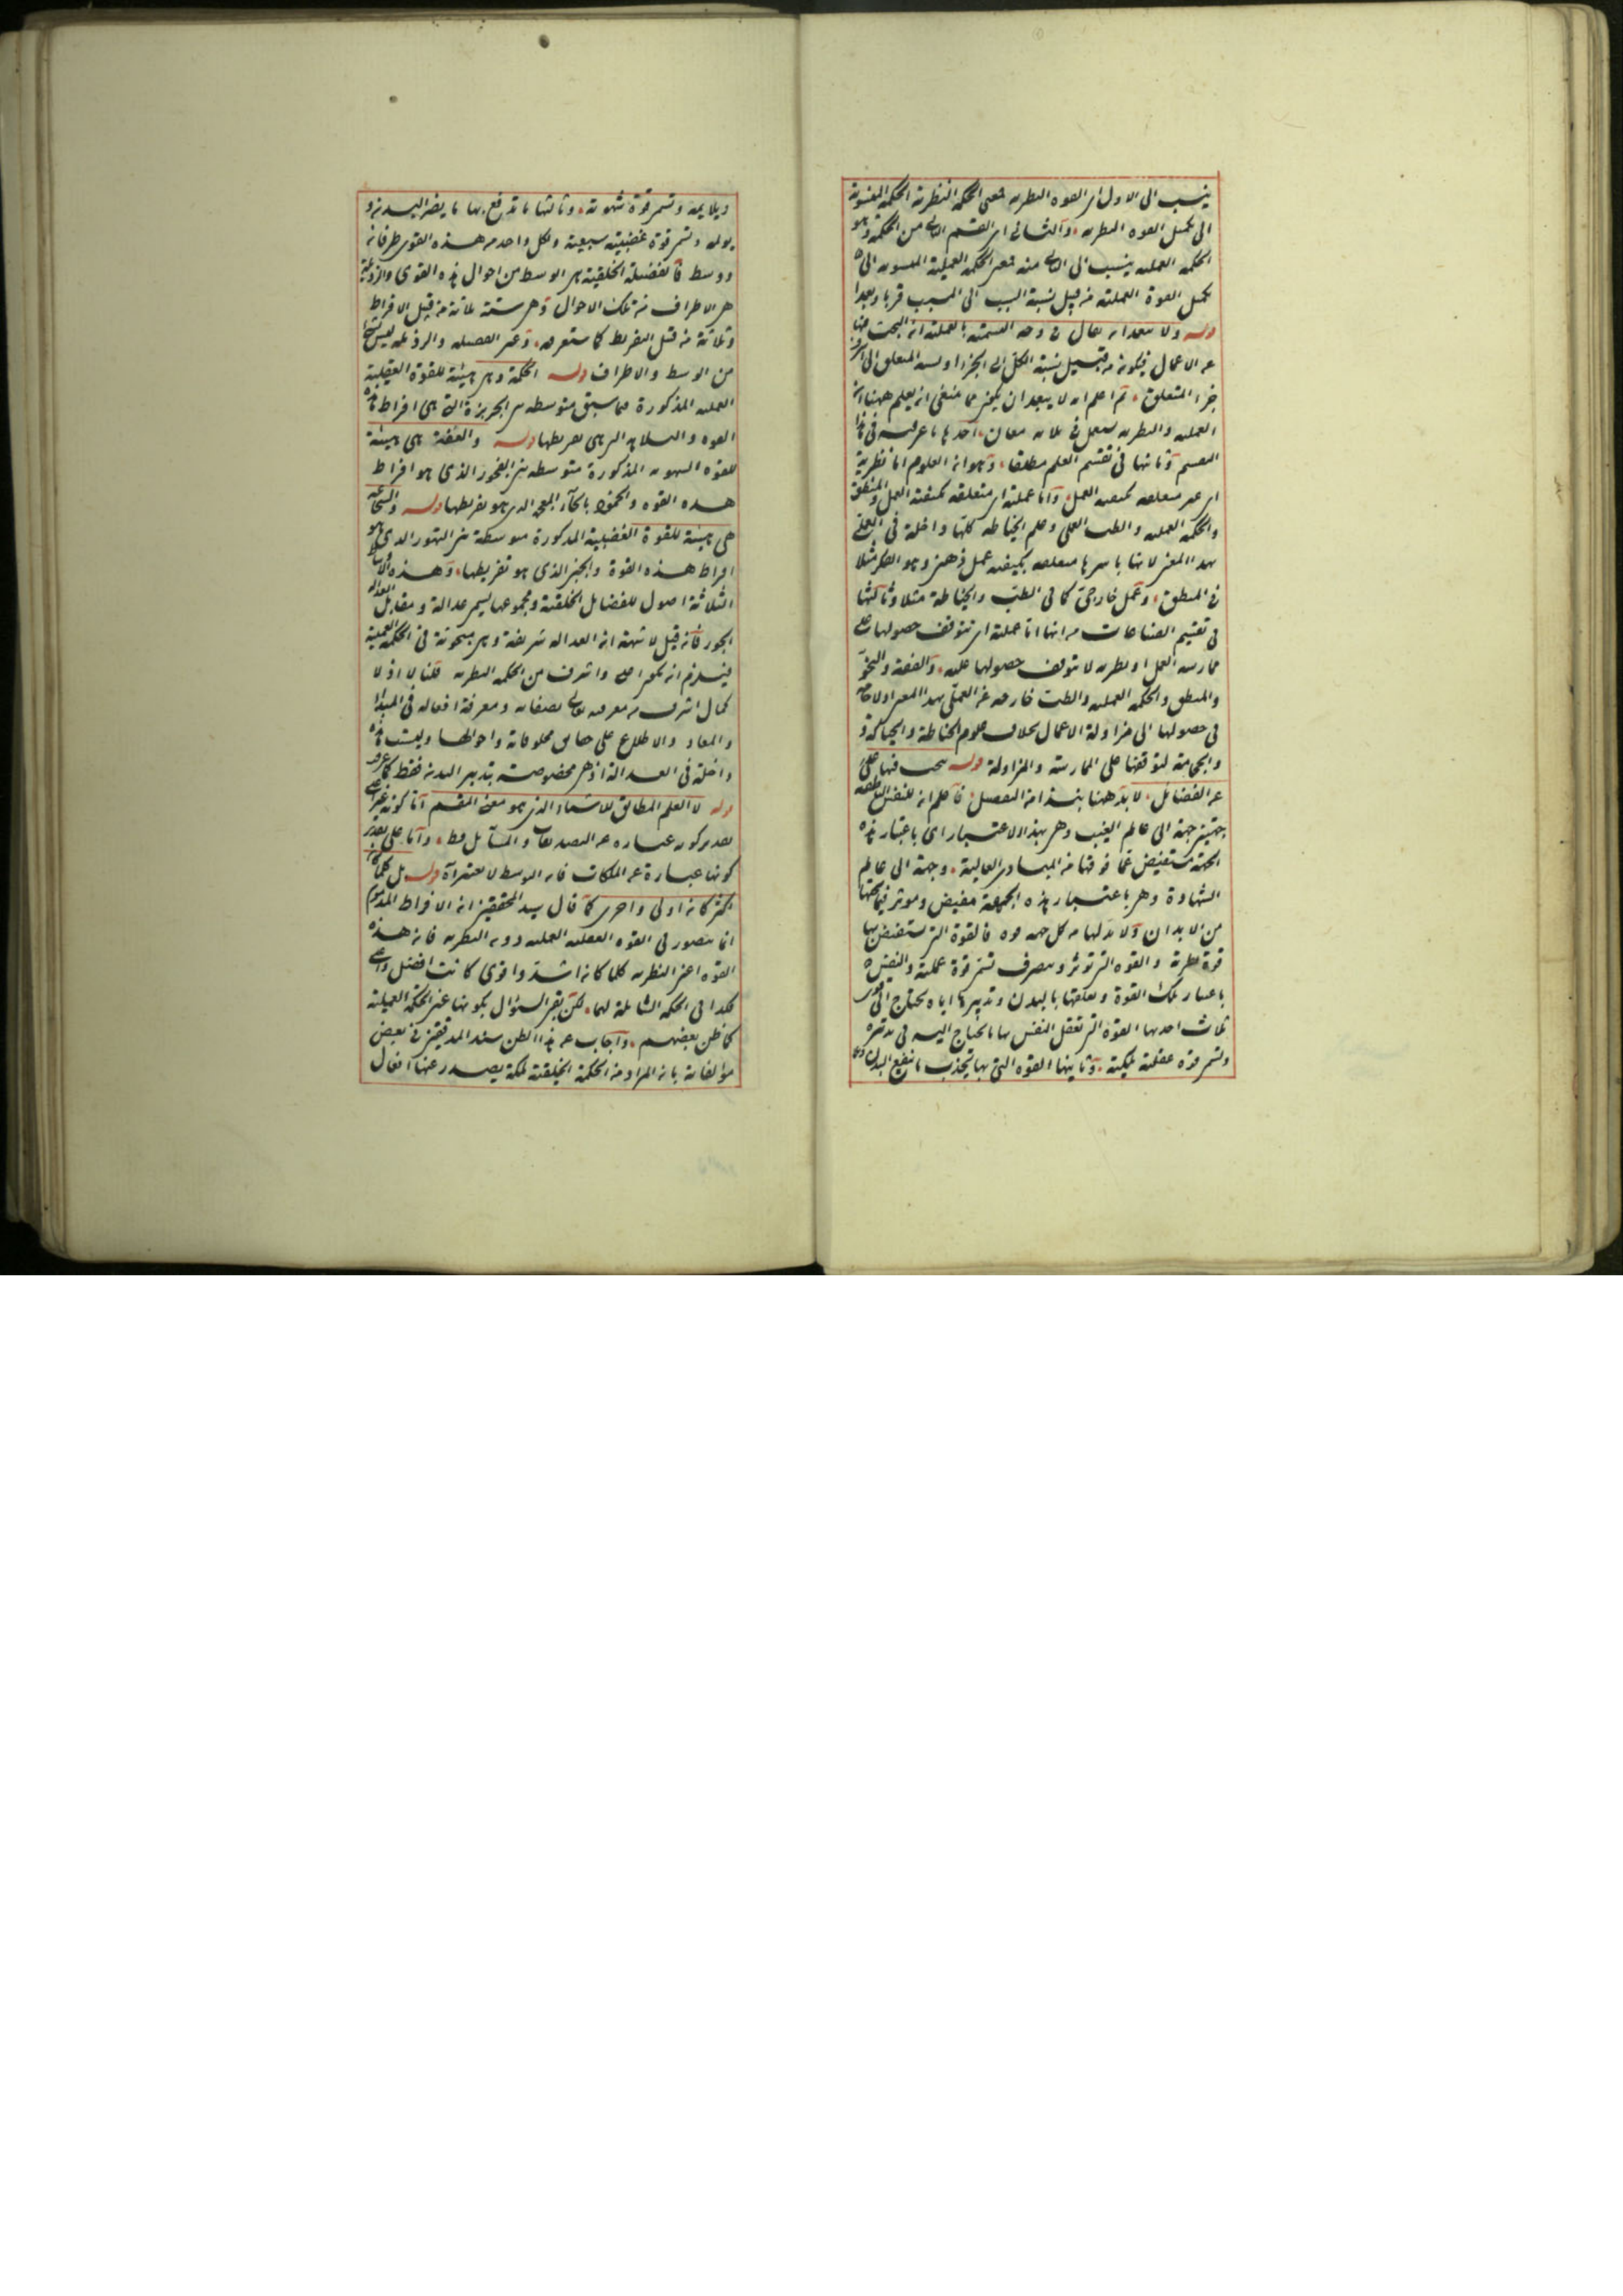 ينسب الى الاول اى القوه النظريه فمعنى الحكمة النظرية الحكمة المنسوبة
الى تكميل القوه النظريه، والثانى اى القسم الثانى من الحكمة وهو
الحكمه العمليه ينسب الى الثانى منه فمعنى الحكمة العملية المنسوبه الى
تكميل القوة العملية من قبيل نسبة السبب الى المسبب قربا وبعدا
قوله ولا يبعد ان يقال فى وجه التسمية بالعملية ان البحث فيها
عن الاعمال فيكون من قبيل نسبة الكل الى الجزء او نسبه المتعلق الى
جزء المتعلق، ثم اعلم انه لا يبعد ان يكون مما ينبغى ان يعلم ههنا ان
العمليه والنظريه يستعمل فى ثلاثه معان، احدها ما عرفت فى هذا
التقسيم وثانيها فى تقسيم العلم مطلقا، وهو ان العلوم اما نظرية
اى غير متعلقه بكيفيه العمل، واما عملية اى متعلقه بكيفية العمل والمنطق
والحكمة العمليه والطب العملى وعلم الخياطه كلها داخلة فى العملى
بهذا المعنى لانها باسرها متعلقه بكيفيه عمل ذهنى وهو الفكر مثلا
فى المنطق، وعمل خارجى كما فى الطب والخياطة مثلا وثالثها
فى تقسيم الصناعات من انها اما عملية اى تتوقف حصولها على
ممارسه العمل او نظريه لا تتوقف حصولها عليه، والفقه والنحو
والمنطق والحكمه العمليه والطب خارجه عن العملى بهذا المعنى اذ لا حاجه
فى حصولها الى مزاولة الاعمال بخلاف علوم الخياطة والحياكة و
والحجامة لتوقفها على الممارسة والمزاولة قوله يبحث فيها
عن الفضائل، لا بد ههنا بنبذ من التفصيل، فاعلم ان للنفس الناطقه
جهتين جهة الى عالم الغيب وهى بهذا الاعتبار اى باعتبار هذه
الجهة مستفيض عما فوقها من المبادى العالية، وجهة الى عالم
الشهادة وهى باعتبار هذه الجهة مفيض وموثر فيما تحتها
من الابدان ولا بد لها من كل جهه قوه فالقوة التى تستفيض بها
قوة نظرية والقوه التى توثر وتتصرف تسمى قوة عملية والنفس
باعتبار تلك القوة وتعلقها بالبدن وتدبيرها اياه يحتاج الى قوى
ثلاث احديها القوه التى تعقل النفس بها ما تحتاج اليه فى تدبيره
وتسمى قوه عقلية ملكية، وثانيها القوه التى بها تجذب ما ينفع البدن
ويلايمه وتسمى قوة شهوية، وثالثها ما تدفع بها ما يضر البدن و
يولمه وتسمى قوة غضبية سبعية ولكل واحد من هذه القوى طرفان
ووسط فالفضيلة الخلقية هى الوسط من احوال هذه القوى والرذيلة
هى الاطراف من تلك الاحوال وهى ستة ثلاثة من قبل الافراط
وثلاثة من قبل التفريط كما ستعرفه،
من الوسط والاطراف قوله الحكمة وهى هيئة للقوة العقلية
العمليه المذكورة مما سبق متوسطه بين الجربزة التى هى افراط هذه
القوه والبلاهه التى هى تفريطها قوله والعفة هى هيئة
للقوه الشهويه المذكورة متوسطه بين الفجور الذى هو افراط
هذه القوه والخمود بالخاء المعجمه الذى هو تفريطها قوله والشجاعه
هى هيئة للقوة الغضبية المذكورة متوسطة بين التهور الذى هو
افراط هذه القوة والجبن الذى هو تفريطها، وهذه الاوساط
الثلاثة اصول للفضايل الخلقية ومجموعها يسمى عدالة ومقابل العداله
الجور فان قيل لا شبهة ان العداله شريفة وهى مبحوثة فى الحكمة العملية
فيلزم ان يكون اعلى واشرف من الحكمه النظريه قلنا لا اذ لا
كمال اشرف من معرفه تعالى بصفاته ومعرفة افعاله فى المبدا
والمعاد والاطلاع على حقايق مخلوقاته واحوالها وليست هذه
داخلة فى العدالة اذ هى مخصوصة بتدبير البدن فقط كما عرف
قوله لا العلم المطابق للاشياء الذى هو معنى المقسم اما كونه غير
بتقدير كونه عبارة عن التصديقات والمسائل فقط، واما على تقدير
كونها عبارة عن الملكات فان الوسط لا يعتبر قوله بل كلما
اكثر كان اولى واحرى كما قال سيد المحققين ان الافراط المذموم
انما يتصور فى القوه العقليه العمليه دون النظريه فان هذه
القوه اعنى النظريه كلما كان اشد واقوى كانت افضل
فكذا فى الحكمه الشاملة لهما، لكن بقى السؤال بكونها عين الحكمة العملية
كما ظن بعضهم، واجاب عن هذا الظن سند المدققين فى بعض
مؤلفاته بان المراد من الحكمة الخلقية ملكة يصدر عنها افعال